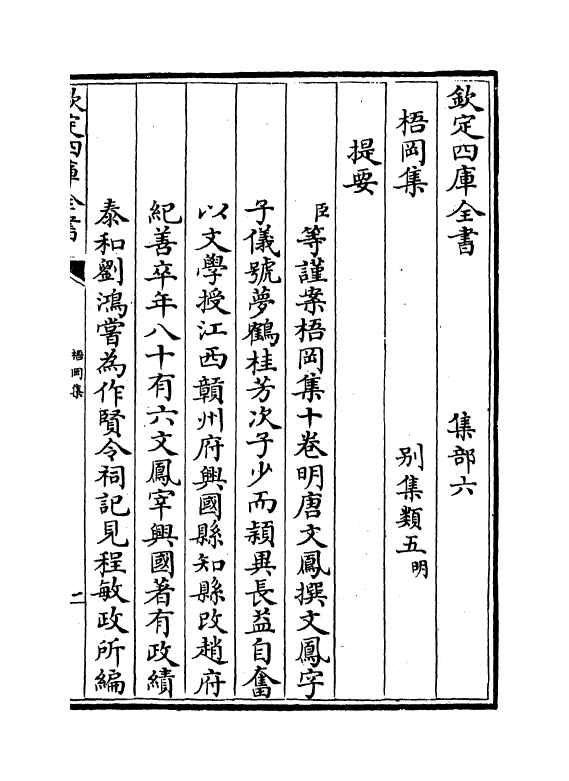 欽定四庫全書　集部六
梧岡集　別集類五明
提要
臣等謹案梧岡集十卷明唐文鳳撰文鳳字
子儀號夢鶴桂芳次子少而穎異長益自奮
以文學授江西贛州府興國縣知縣改趙府
紀善卒年八十有六文鳳宰興國著有政績
泰和劉鴻嘗為作賢令祠記見程敏政所編
欽定四庫全書　梧岡集　二